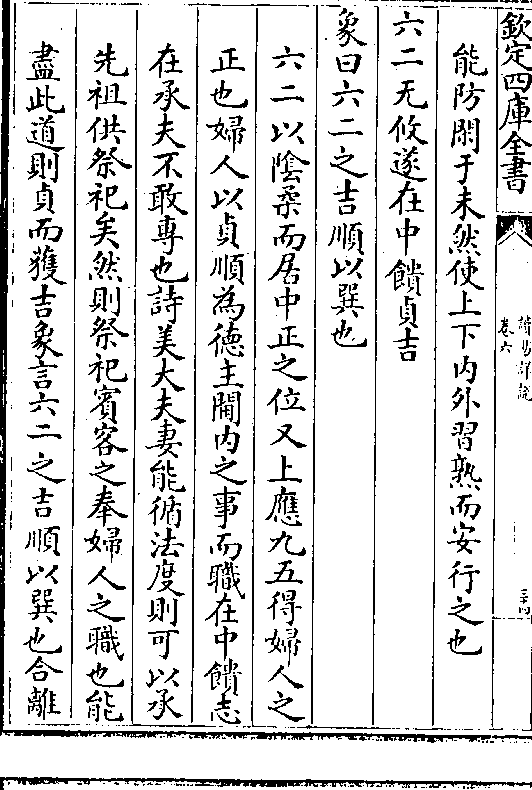 欽定四庫全書
讀易詳說
卷六
三十四
能防閑于未然使上下内外習熟而安行之也
六二无攸遂在中饋貞吉
象曰六二之吉順以巽也
六二以隂柔而居中正之位又上應九五得婦人之
正也婦人以貞順為徳主閫内之事而職在中饋志
在承夫不敢專也詩美大夫妻能循法度則可以承
先祖供祭祀矣然則祭祀賓客之奉婦人之職也能
盡此道則貞而獲吉象言六二之吉順以巽也合離